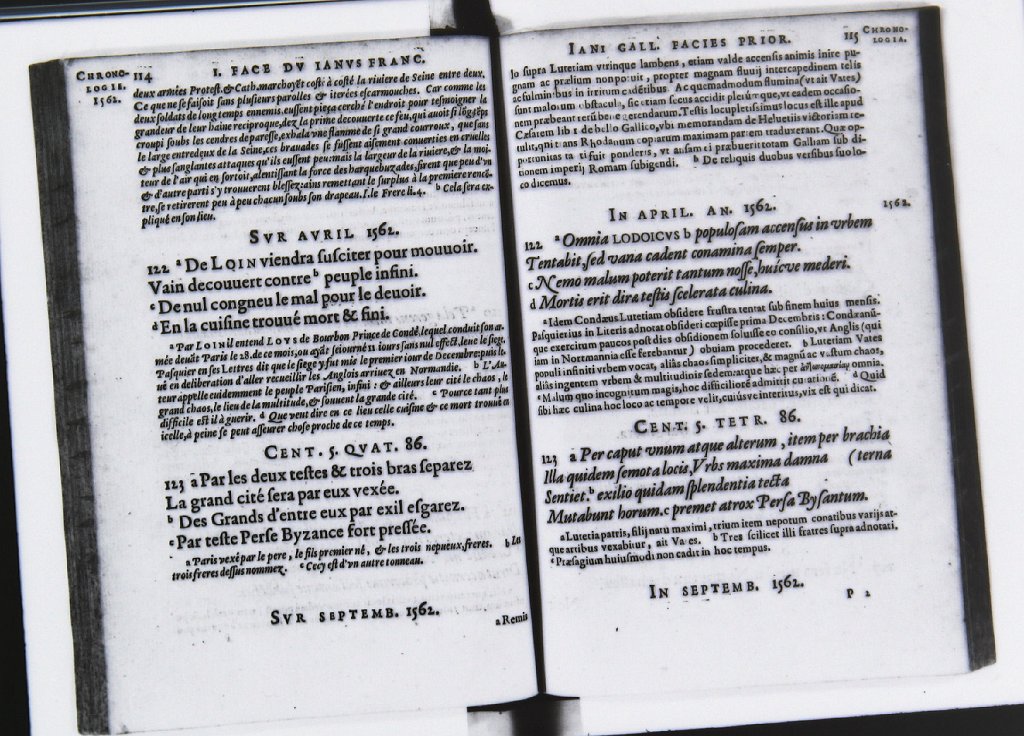 CHRONO-
LOGIE.
1562.
114
I. FACE DV IANVS FRANC.
deux armées Protest. & Cath. marchoyēt costé à costé la riuiere de Seine entre deux.
Ce que ne se faisoit sans plusieurs parolles & iterées escarmouches. Car comme les
deux soldats de long temps ennemis, eussent pieça cerché l'endroit pour tesmoigner la
grandeur de leur haine reciproque, dez la prime decouuerte ce feu, qui auoit si lōg tēps
croupi soubs les cendres de paresse, exhala vne flamme de si grand courroux, que sans
le large entredeux de la Seine, ces brauades se fussent aisement conuerties en cruelles
& plus sanglantes attaques qu'ils eussent peu: mais la largeur de la riuiere, & la moi-
teur de l'air qui en sortoit, alentissant la force des harquebuzades, firent que peu d'vn
& d'autre parti s'y trouuerent blessez: ains remettant le surplus à la premiere rencō-
tre, se retirerent peu à peu chacun soubs son drapeau. I. le Frere li. 4. b Cela s'ex-
pliqué en son lieu.
SVR AVRIL 1562.
122 a De LOIN viendra susciter pour mouuoir.
Vain decouuert contre b peuple infini.
c De nul congneu le mal pour le deuoir.
d En la cuisine trouué mort & fini.
a Par LOIN il entend LOVS de Bourbon Prince de Condé, lequel conduit son ar-
mée deuāt Paris le 28. de ce mois, ou ayāt seiourné 11 iours sans nul effect, leue le siege.
Pasquier en ses Lettres dit que le siege y fut mis le premier iour de Decembre: puis le-
ué en deliberation d'aller recueillir les Anglois arriuez en Normandie. b L'Au-
teur appelle euidemment le peuple Parisien, infini: & ailleurs leur cité le chaos, le
grand chaos, le lieu de la multitude, & souuent la grande cité. c Pource tant plus
difficile est il à guerir. d Que veut dire en ce lieu celle cuisine & ce mort trouué en
icelle, à peine se peut asseurer chose proche de ce temps.
CENT. 5. QVAT. 86.
123 a Par les deux testes & trois bras separez
La grand cité sera par eux vexée.
b Des Grands d'entre eux par exil esgarez.
c Par teste Perse Byzance fort pressée.
a Paris vexé par le pere, le fils premier né, & les trois nepueux, freres. b Les
trois freres dessus nommez. c Cecy est d'vn autre tonneau.
SVR SEPTEMB. 1562.
a Remis
IANI GALL. FACIES PRIOR.
115
CHRONO-
LOGIA.
lo supra Lutetiam vtrinque lambens, etiam valde accensis animis inire pu-
gnam ac prælium non potuit, propter magnam fluuij intercapedinem telis
ac fulminibus in irritum cadētibus. Ac quemadmodum flumina (vt ait Vates)
sunt malorum obstacula, sic etiam secus accidit plerūque, vt eadem occasio-
nem præbeant rersi bene gerendarum. Testis locupletissimus locus est ille apud
Cæsarem lib 1 de bello Gallico, vbi memorandam de Heluetiis victoriam re-
tulit, quit ans Rhodanum copiarum maximam partem traduxerant. Quæ op-
portunitas tāti fuit ponderis, vt ausam ei præbuerit totam Galliam sub di-
tionem imperij Romam subigendi. b De reliquis duobus versibus suo lo-
co dicemus.
IN APRIL. AN. 1562.
1562.
122 a Omnia LODOICVS b populosam accensus in vrbem
Tentabit, sed vana cadent conamina semper.
c Nemo malum poterit tantum nosse, huicve mederi.
d Mortis erit dira testis scelerata culina.
a Idem Condæus Lutetiam obsidere frustra tentat sub finem huius mensis.
Pasquierius in Literis adnotat obsideri cœpisse prima Decembris: Condæanū-
que exercitum paucos post dies obsidionem soluisse eo consilio, vt Anglis (qui
iam in Normannia esse ferebantur) obuiam procederet. b Lutetiam Vates
populi infiniti vrbem vocat, aliàs chaos simpliciter, & magnū ac vastum chaos,
aliàs ingentem vrbem & multitudinis sedem: atque hæc per omnia.
c Malum quo incognitum magis, hoc difficiliorē admittit curationē. d Quid
sibi hæc culina hoc loco ac tempore velit, cuiúsve interitus, vix est qui dicat.
CENT. 5. TETR. 86.
123 a Per caput vnum atque alterum, item per brachia
Illa quidem semota locis, Vrbs maxima damna (terna
Sentiet. b exilio quidam splendentia tecta
Mutabunt horum. c premet atrox Persa Bysantum.
a Lutetia patris, filij natu maximi, trium item nepotum conatibus varijs at-
que artibus vexabitur, ait Vates. b Tres scilicet illi fratres supra adnotati.
c Præsagium huiusmodi non cadit in hoc tempus.
IN SEPTEMB. 1562.
P 2